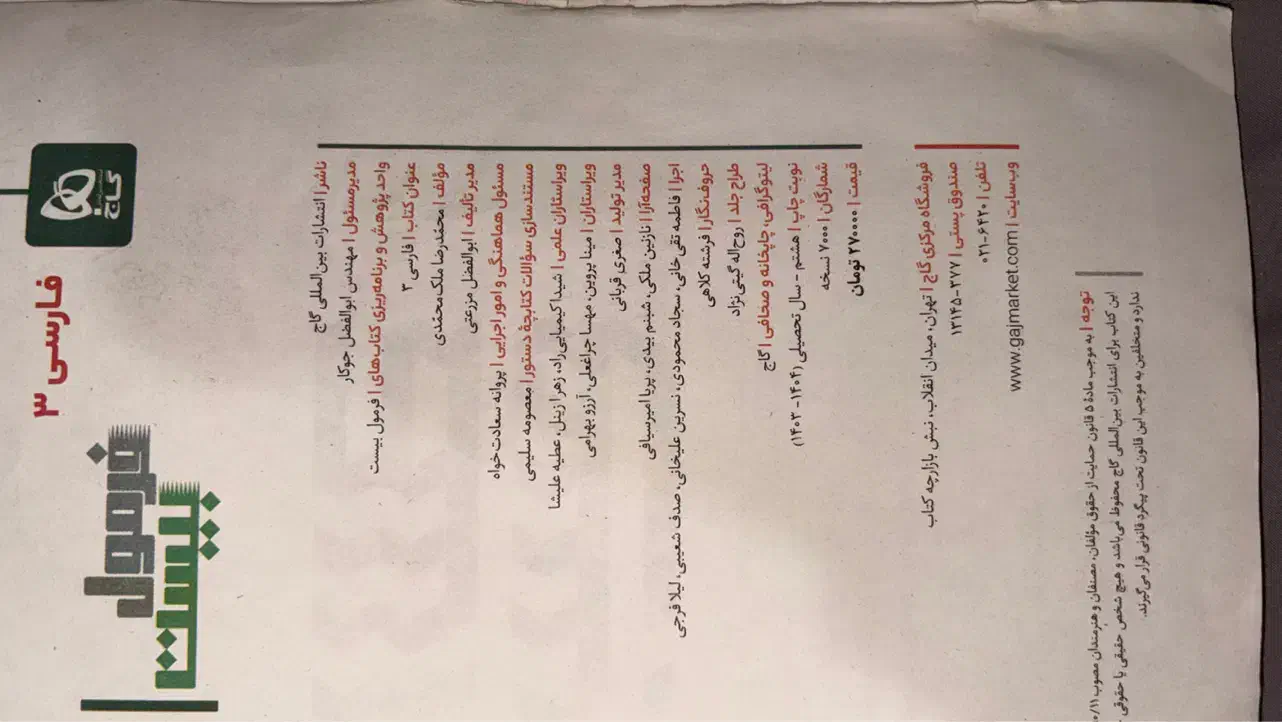 گاج
فارسی ۳
فرمول
بیست
ناشر | انتشارات بین‌المللی گاج
مدیرمسئول | مهندس ابوالفضل جوکار
واحد پژوهش و برنامه‌ریزی کتاب‌های | فرمول بیست
عنوان کتاب | فارسی ۳
مؤلف | محمّدرضا ملک‌محمّدی
مدیر تألیف | ابوالفضل مزرعتی
مسئول هماهنگی و امور اجرایی | پروانه سعادت‌خواه
مستندسازی سؤالات کتابچهٔ دستور | معصومه سلیمی
ویراستاران علمی | شیدا کیمیایی‌راد، زهرا زینل، عطیه علیشا
ویراستاران | مینا بروین، مهسا چراغعلی، آرزو بهرامی
مدیر تولید | صغری قربانی
صفحه‌آرا | نازنین ملکی، شبنم بیدی، پریا امیرسیافی
اجرا | فاطمه تقی‌خانی، سجاد محمودی، نسرین علیخانی، صدف شعیبی، لیلا فرجی
حروف‌نگار | فرشته کلاهی
طراح جلد | روح‌اله گیتی‌نژاد
لیتوگرافی، چاپخانه و صحافی | گاج
نوبت چاپ | هشتم - سال تحصیلی (۱۴۰۴-۱۴۰۳)
شمارگان | ۷۰۰۰ نسخه
قیمت | ۲۷۰۰۰۰ تومان
فروشگاه مرکزی گاج | تهران، میدان انقلاب، نبش بازارچه کتاب
صندوق پستی | ۳۷۷-۱۳۱۴۵
تلفن | ۶۴۲۰-۰۲۱
وب‌سایت | www.gajmarket.com
توجه | به موجب مادهٔ ۵ قانون حمایت از حقوق مؤلفان، مصنفان و هنرمندان مصوب ۰/۱۱
این کتاب برای انتشارات بین‌المللی گاج محفوظ می‌باشد و هیچ شخص حقیقی یا حقوقی
ندارد و متخلفین به موجب این قانون تحت پیگرد قانونی قرار می‌گیرند.